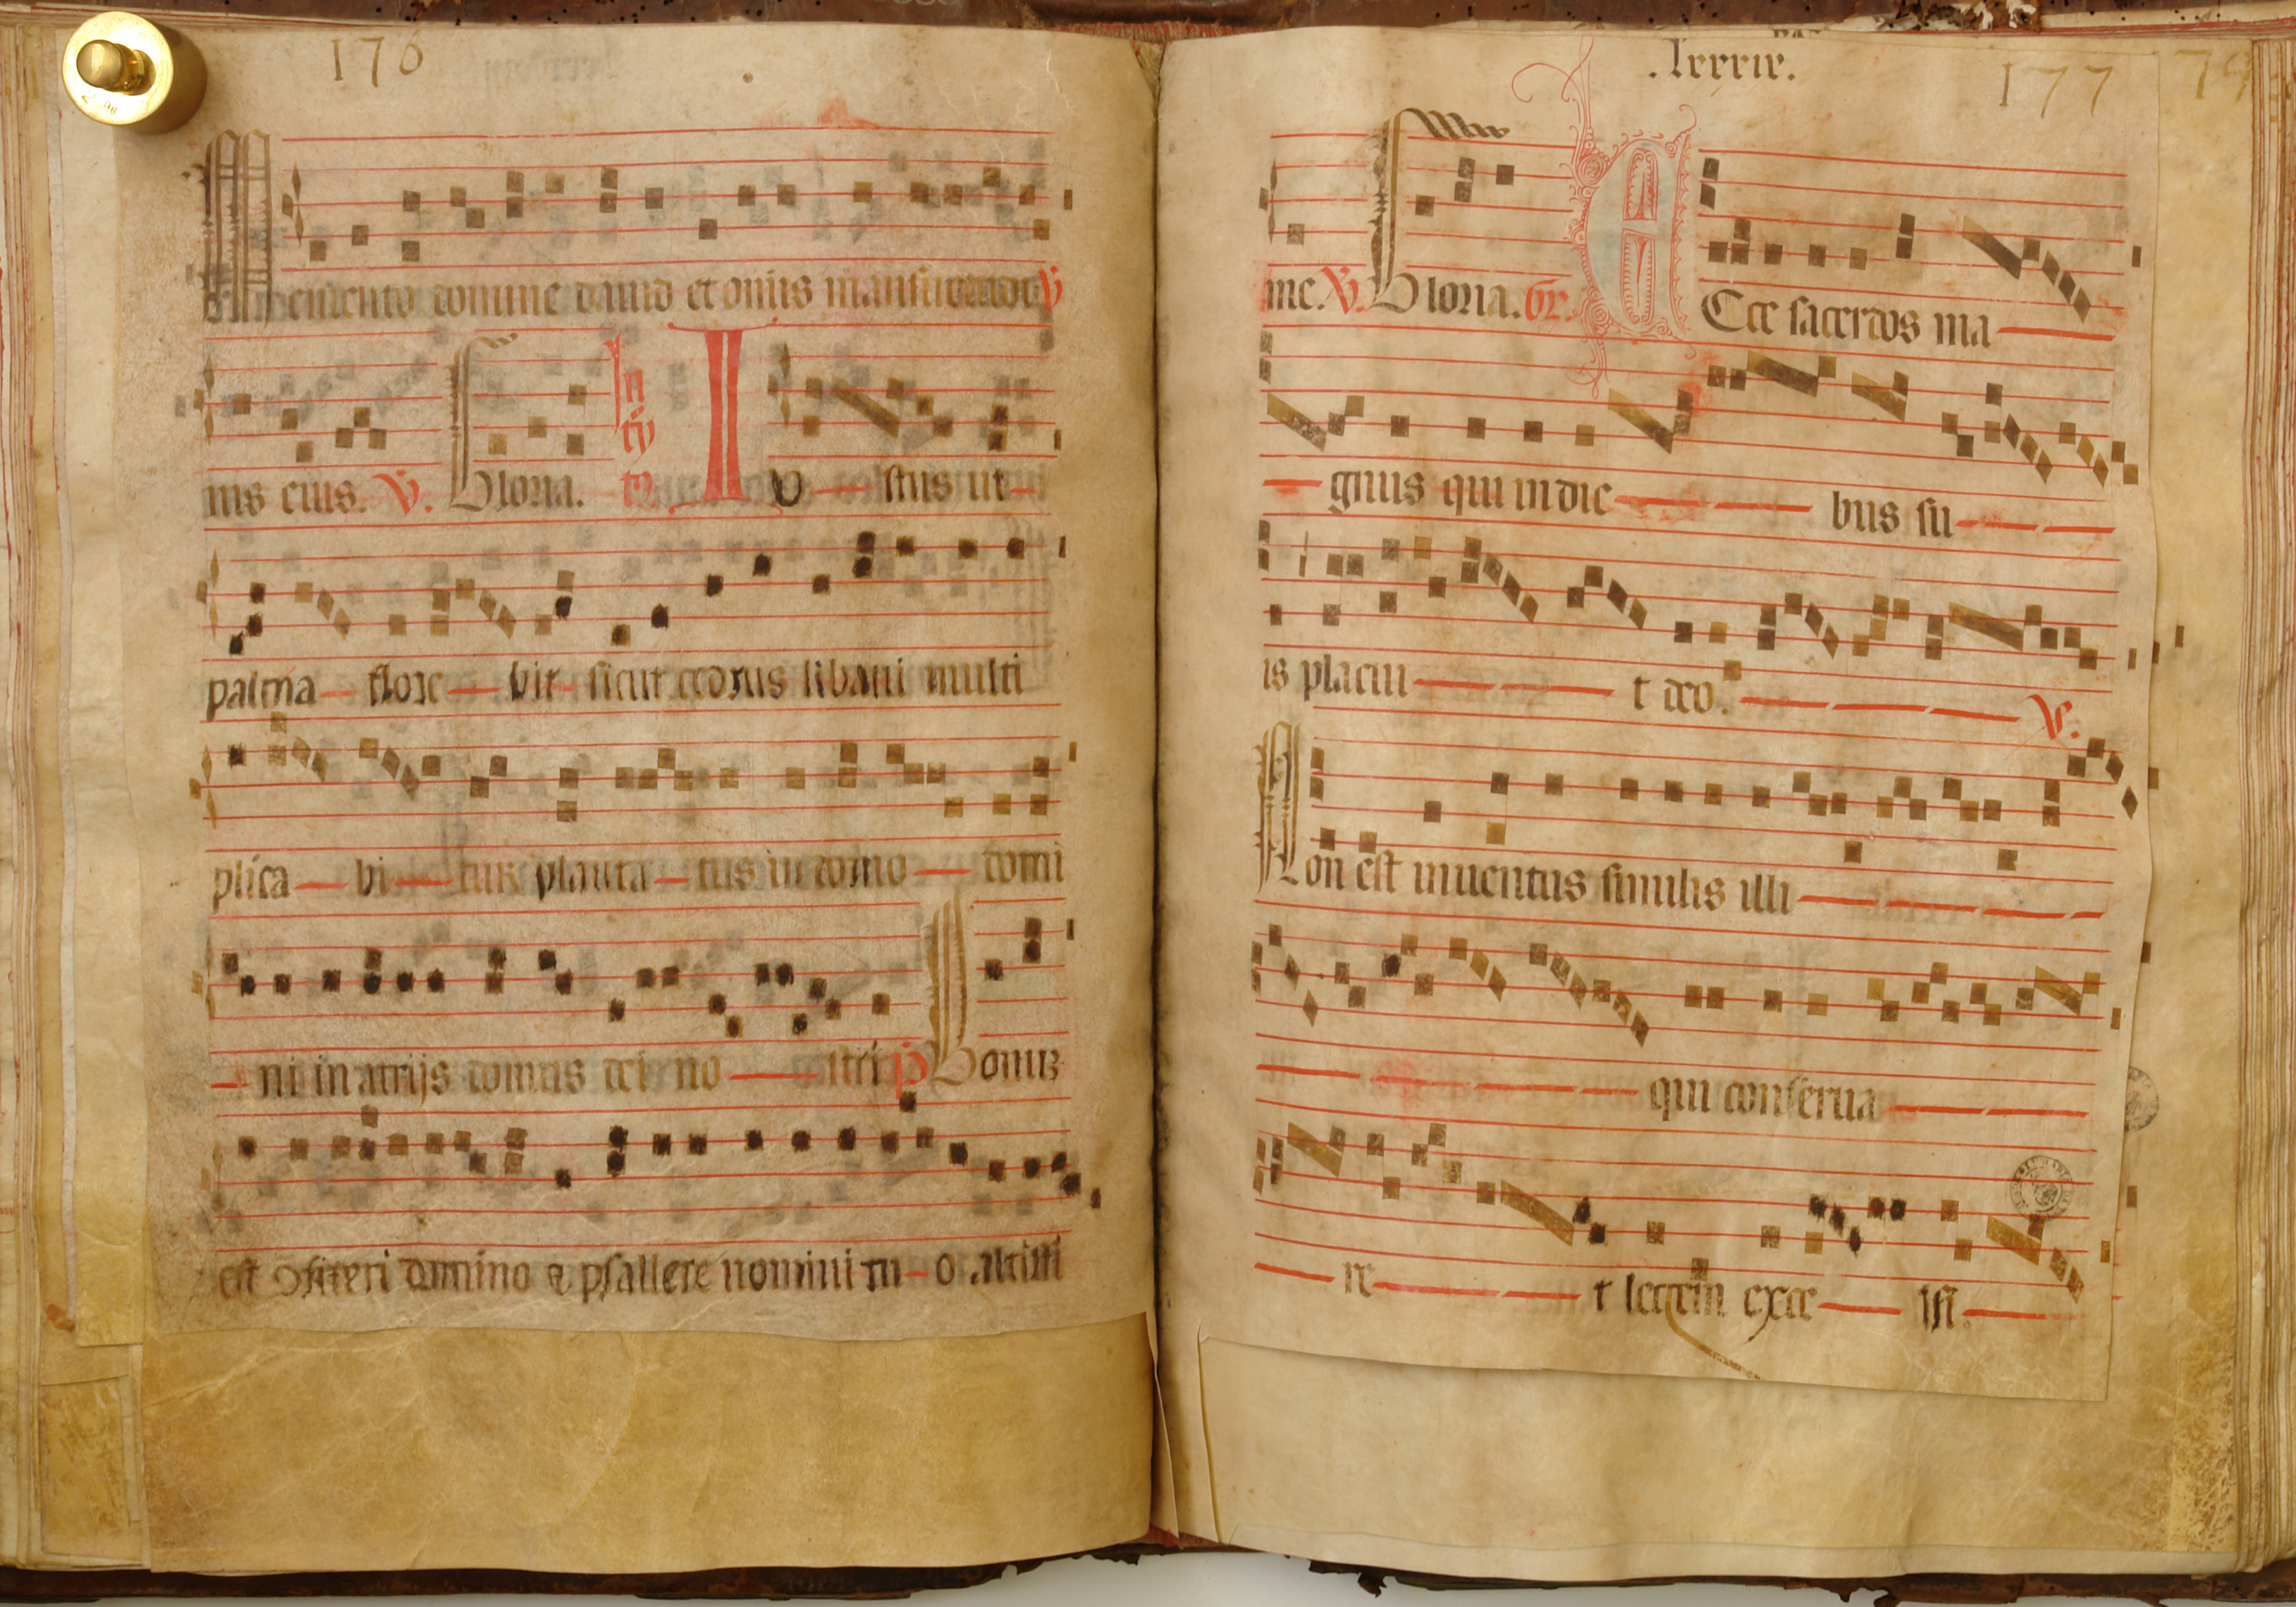 176
Memento domine dauid et omīs mansuetudi
nis eius. V. Gloria. Intrytꝫ Iu — stus ut —
palma — flore — bit sicut cedrus libani multi
plica — bi — tur planta — tus in domo — domi
— ni in atrijs domus dei no — stri p̄ Bonuꝫ
est ꝯfiteri domino & psallere nomini tu — o altissi
.lxxxix. 177 79
me. V. Gloria. Gr. Ecce sacerdos ma —
— gnus qui in die — bus su —
is placui — t deo. — V.
Non est inuentus similis illi —
— qui conserua —
— re — t legem exce — lsi. —